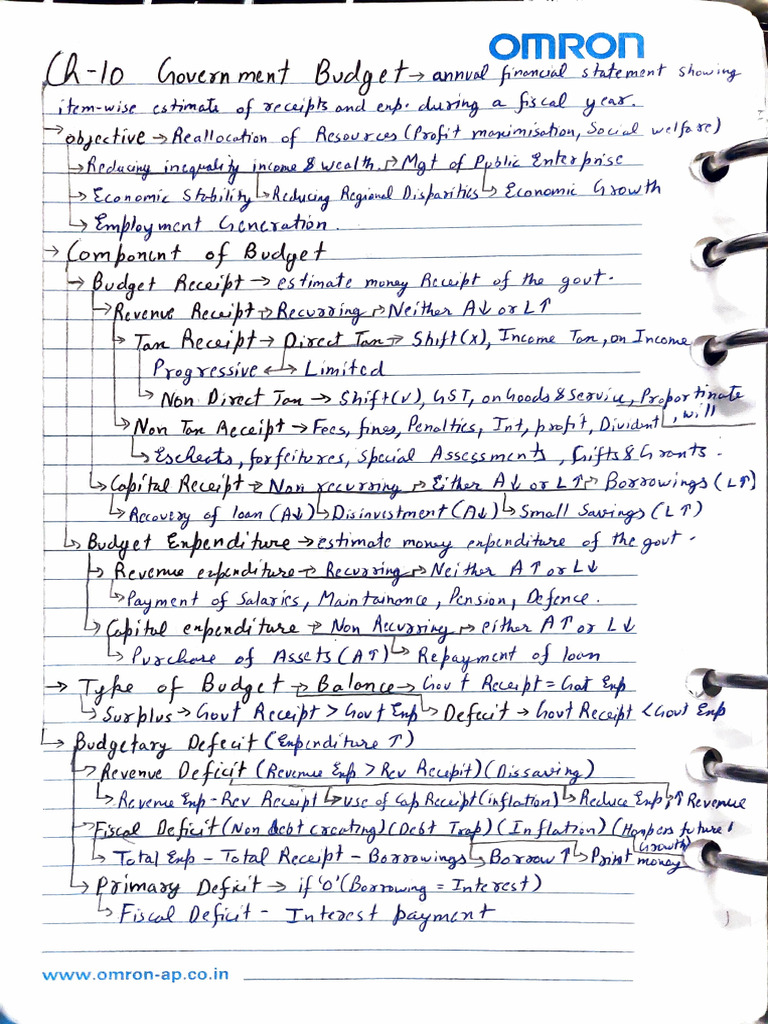 OMRON
Ch-10 Government Budget → annual financial statement showing
item-wise estimate of receipts and exp. during a fiscal year.
→ objective → Reallocation of Resources (Profit maximisation, Social welfare)
↳ Reducing inequality income & wealth. ↳ Mgt of Public Enterprise
↳ Economic Stability ↳ Reducing Regional Disparities ↳ Economic Growth
↳ Employment Generation.
→ Component of Budget
↳ Budget Receipt → estimate money Receipt of the govt.
↳ Revenue Receipt → Recurring → Neither A↓ or L↑
↳ Tax Receipt → Direct Tax → Shift(x), Income Tax, on Income
Progressive ↔ Limited
↳ Non Direct Tax → Shift(v), GST, on Goods & Service, Proportinate
, will
↳ Non Tax Receipt → Fees, fines, Penaltics, Int, profit, Divident
↳ Escheats, forfeitures, special Assessments, Gifts & Grants.
↳ Capital Receipt → Non recurring → Either A↓ or L↑ → Borrowings (L↑)
↳ Recovery of loan (A↓) ↳ Disinvestment (A↓) ↳ Small Savings (L↑)
↳ Budget Expenditure → estimate money expenditure of the govt.
↳ Revenue expenditure → Recurring → Neither A↑ or L↓
↳ Payment of Salaries, Maintainance, Pension, Defence.
↳ Capital expenditure → Non Recurring → either A↑ or L↓
↳ Purchase of Assets (A↑) ↳ Repayment of loan
→ Type of Budget → Balance → Govt Receipt = Govt Exp
↳ Surplus → Govt Receipt > Govt Exp ↳ Deficit → Govt Receipt < Govt Exp
↳ Budgetary Deficit (Expenditure ↑)
↳ Revenue Deficit (Revenue Exp > Rev Receipt) (Dissaving)
↳ Revenue Exp - Rev Receipt ↳ use of Cap Receipt (inflation) ↳ Reduce Exp, ↑ Revenue
↳ Fiscal Deficit (Non debt creating) (Debt Trap) (Inflation) (Hampers future
Growth)
↳ Total Exp - Total Receipt - Borrowings ↳ Borrow ↑ ↳ Print money
↳ Primary Deficit → if '0' (Borrowing = Interest)
↳ Fiscal Deficit - Interest payment
www.omron-ap.co.in